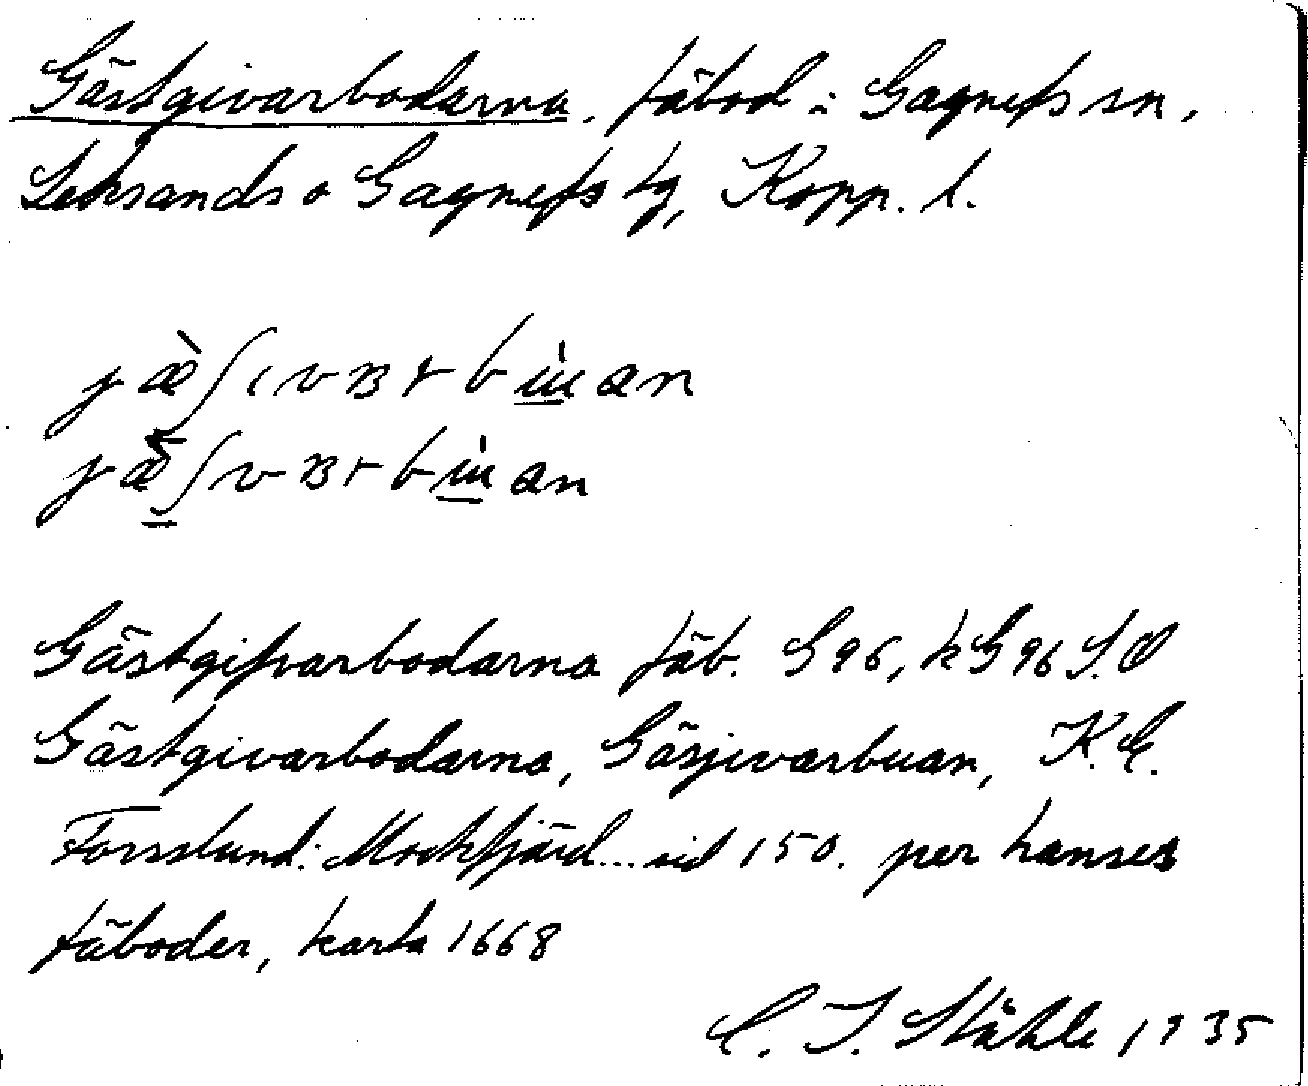 Gästgivarbodarna. fäbod i Gagnefs sn,
Leksands o Gagnefs tg, Kopp. l.
Gästgifvarbodarna fäb. G 96, kG 96 S.O
Gästgivarbodarna, Gäsjivarbuan, K.E.
Forsslund: Mockfjärd... sid 150. per hanses
fäboder, karta 1668
C. I. Ståhle 1935